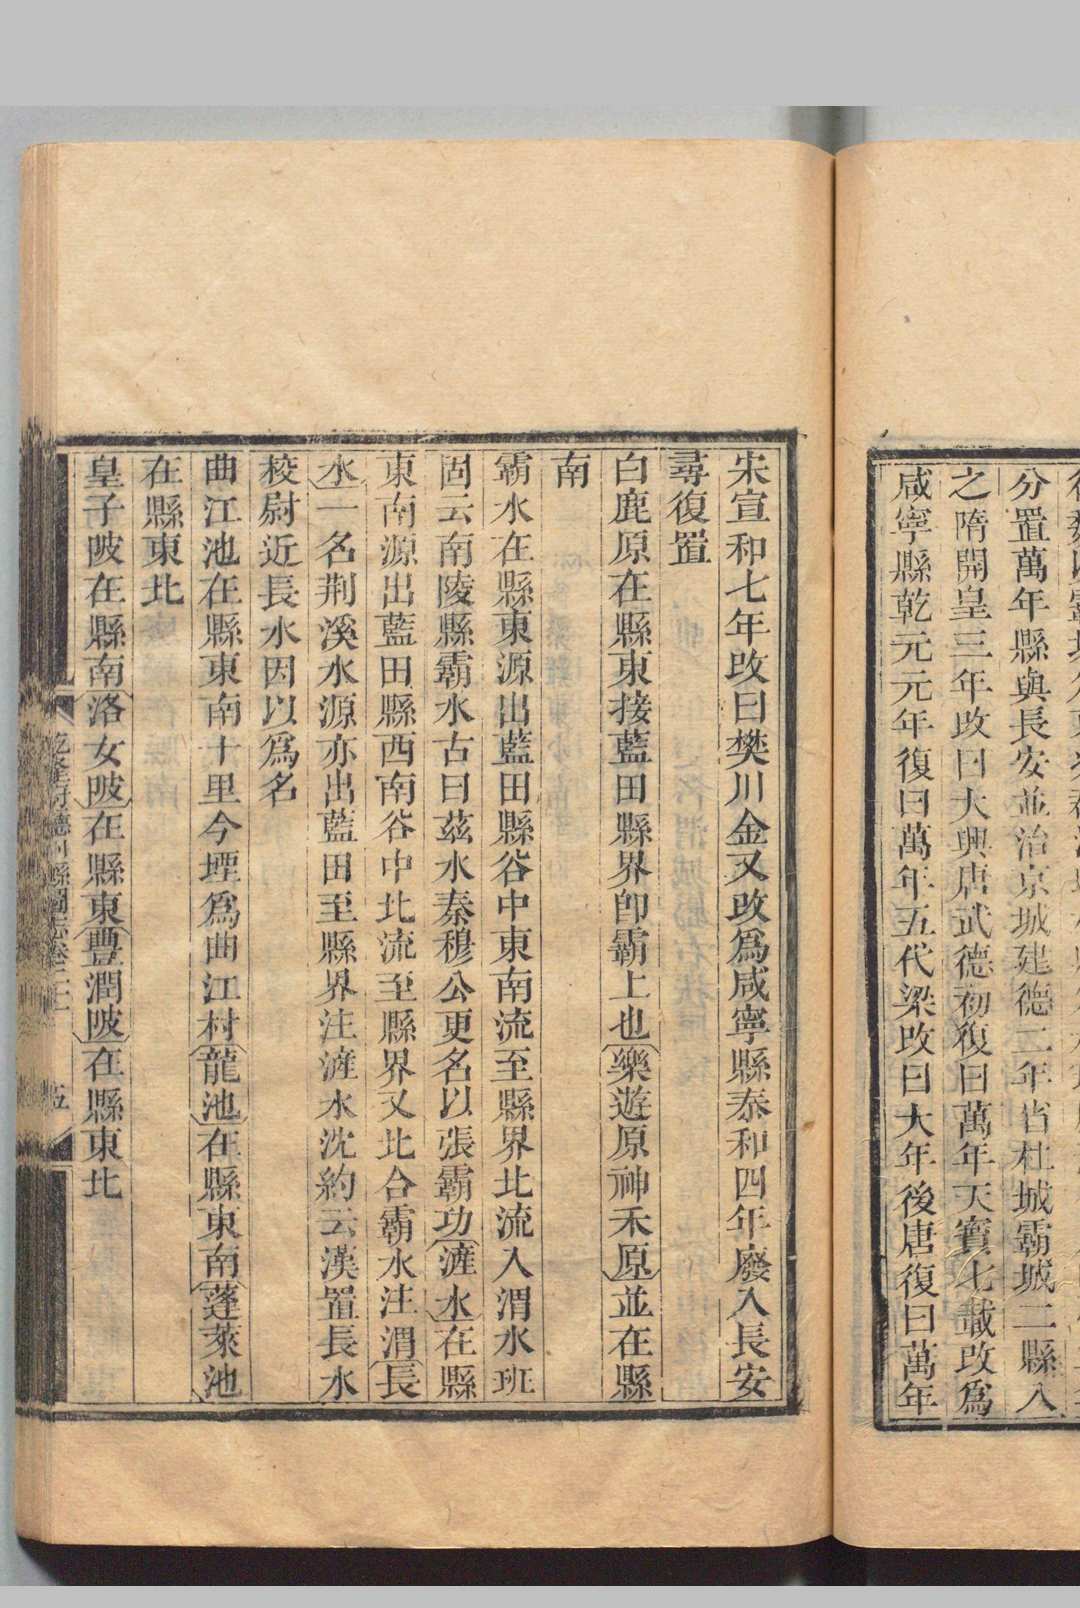 分置萬年縣與長安並治京城建德二年省杜城霸城二縣入
之隋開皇三年改曰大興唐武德初復曰萬年天寶七載改爲
咸寧縣乾元元年復曰萬年五代梁改曰大年後唐復曰萬年
宋宣和七年改曰樊川金又改爲咸寧縣泰和四年廢入長安
尋復置
白鹿原在縣東接藍田縣界卽霸上也樂遊原神禾原並在縣
南
霸水在縣東源出藍田縣谷中東南流至縣界北流入渭水班
固云南陵縣霸水古曰茲水秦穆公更名以張霸功滻水在縣
東南源出藍田縣西南谷中北流至縣界又北合霸水注渭長
水一名荆溪水源亦出藍田至縣界注滻水沈約云漢置長水
校尉近長水因以爲名
曲江池在縣東南十里今堙爲曲江村龍池在縣東南蓬萊池
在縣東北
皇子陂在縣南洛女陂在縣東豐潤陂在縣東北
乾隆府廳州縣圖志卷二十
五